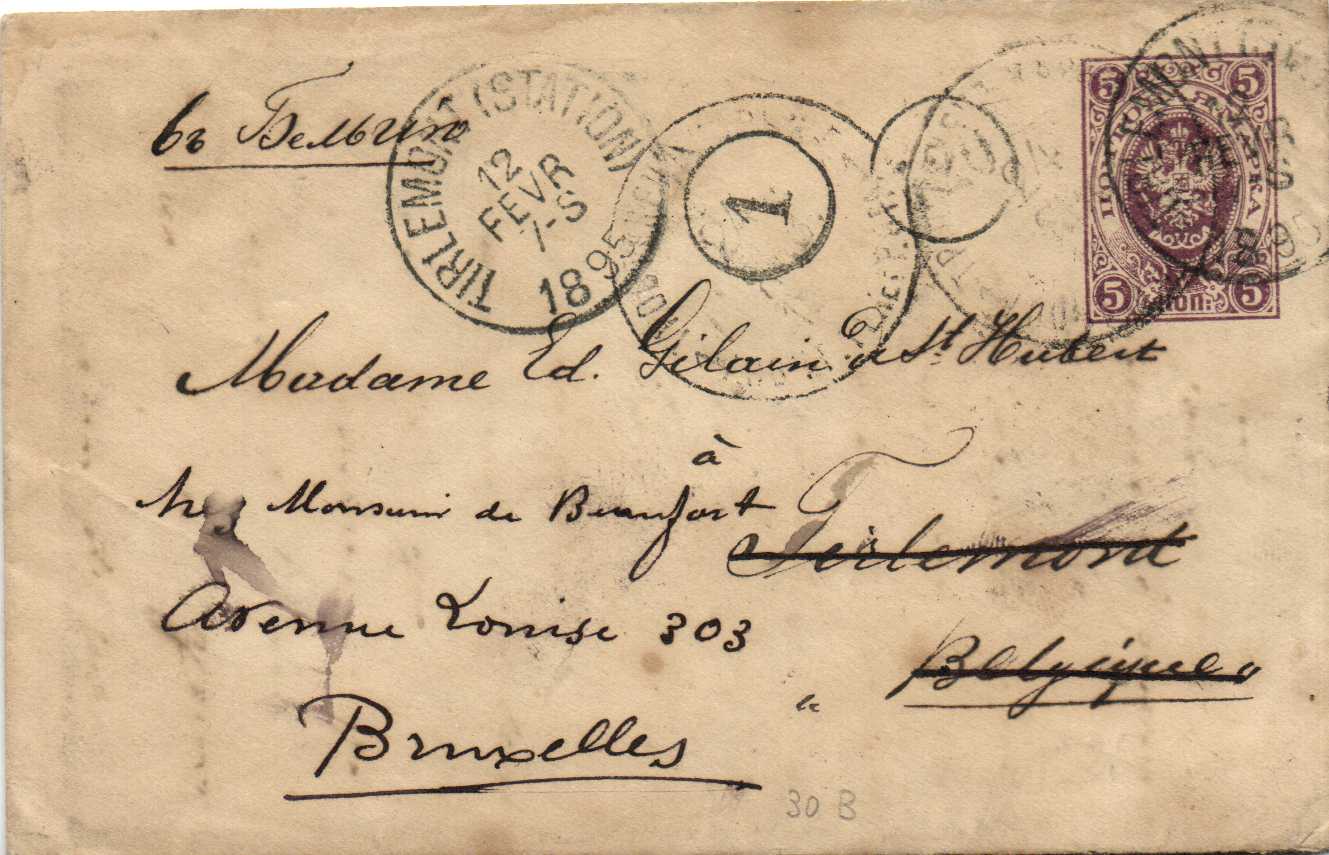 въ Бельгию
TIRLEMONT (STATION)
12
FEVR
7-S
1895
1
5 5
ПОЧТОВАЯ МАРКА
5 коп. 5
Madame Ed. Gilain de St Hubert
à
Tirlemont
Belgique
chez Monsieur de Beaufort
Avenue Louise 303
Bruxelles
30 B